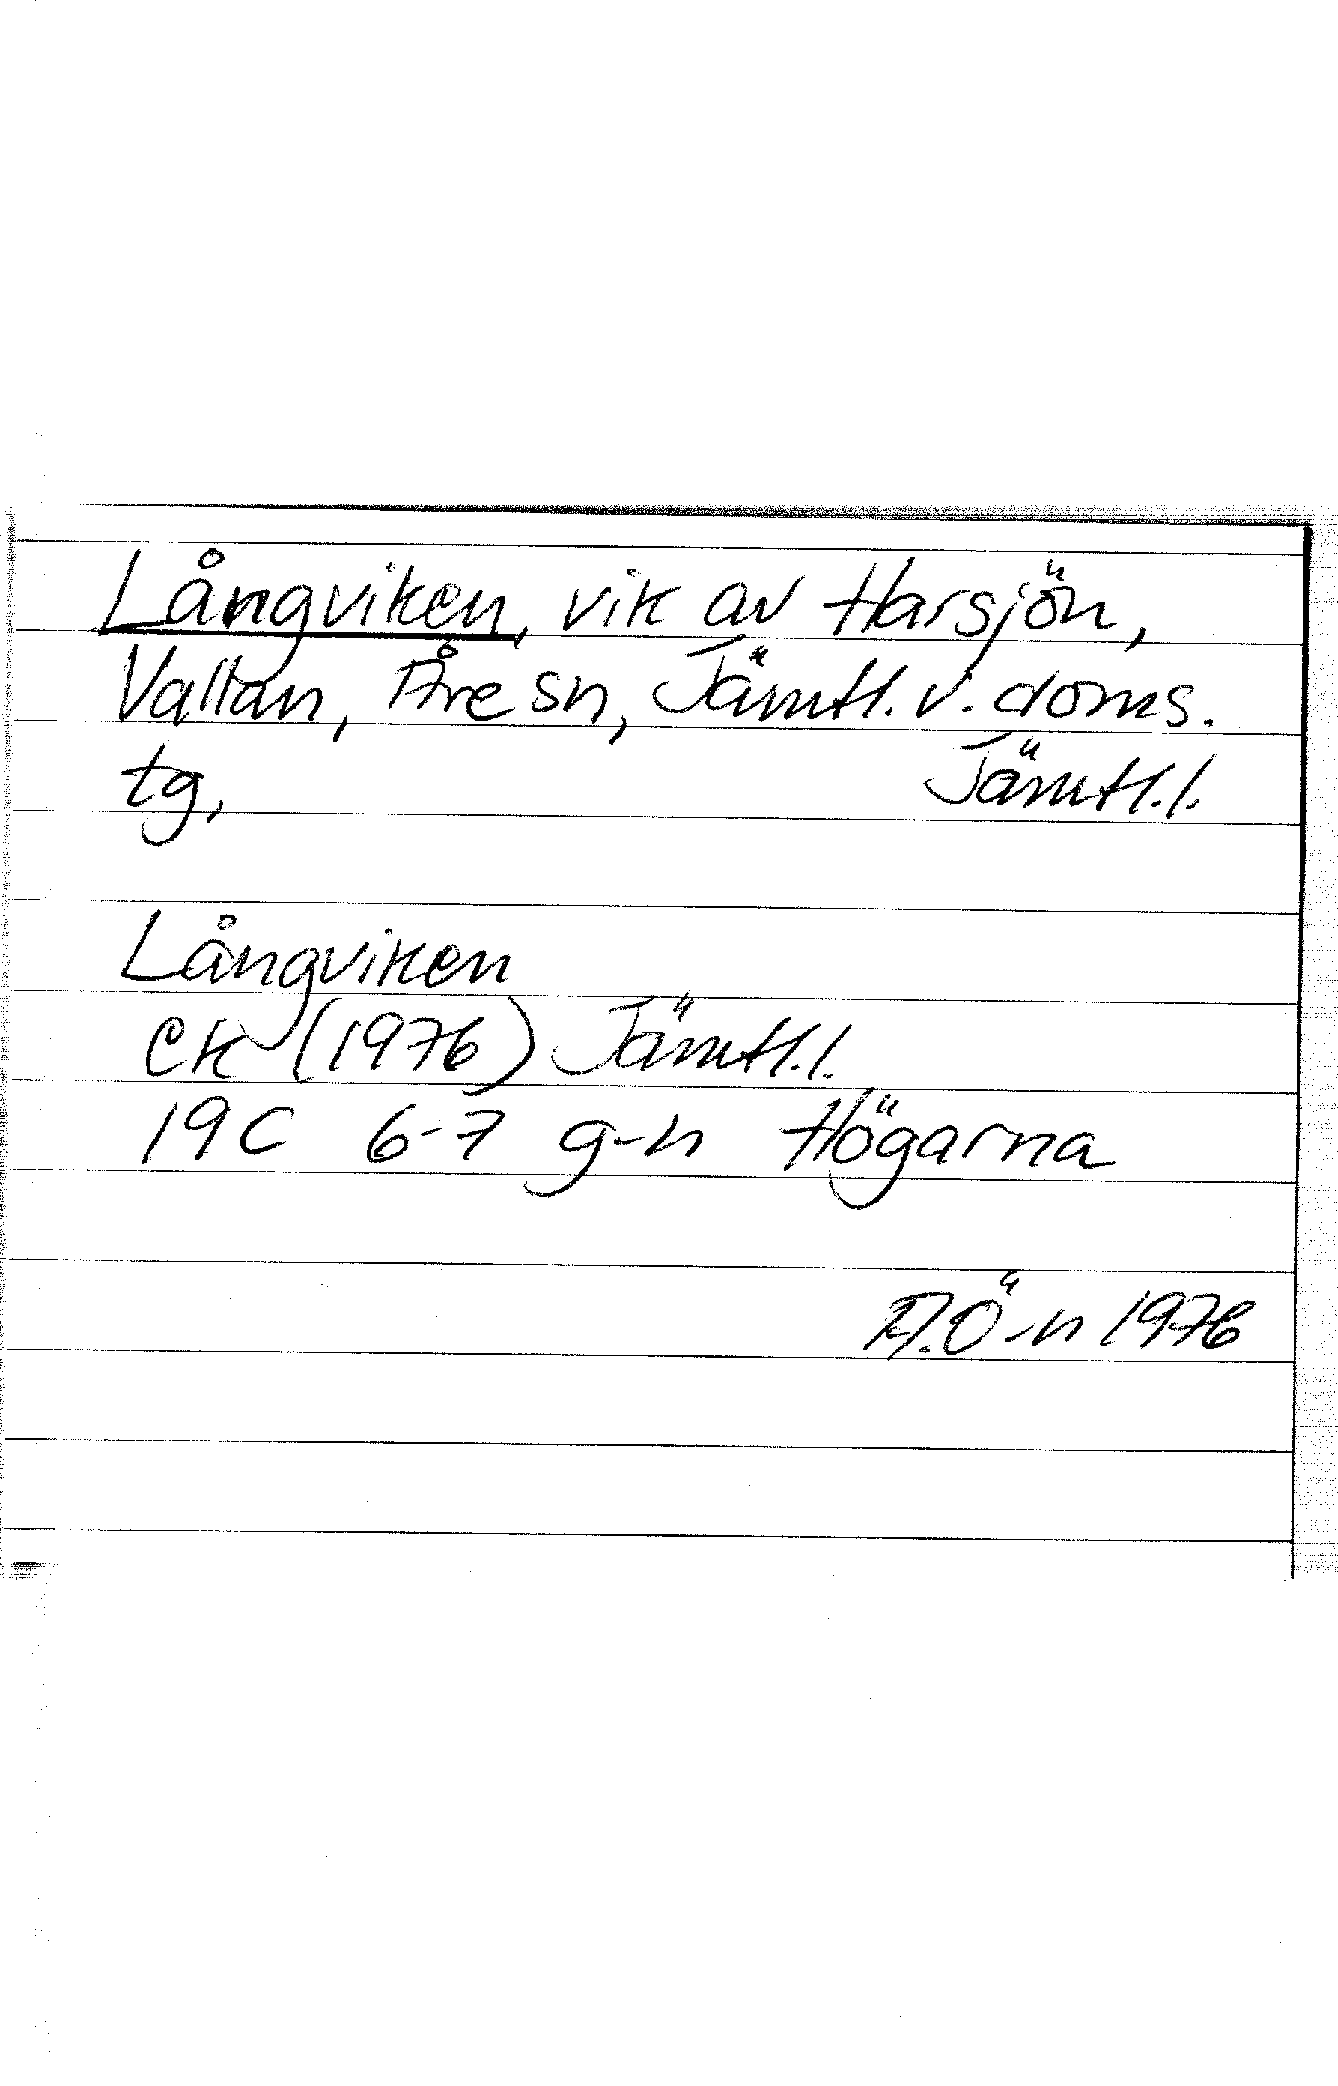 Långviken, vik av Harsjön,
Vallan, Åre sn, Jämtl. v. doms.
tg, Jämtl.l.
Långviken
CK (1976) Jämtl.l.
19C 6-7 g-h Högarna
A.Ö-n 1976